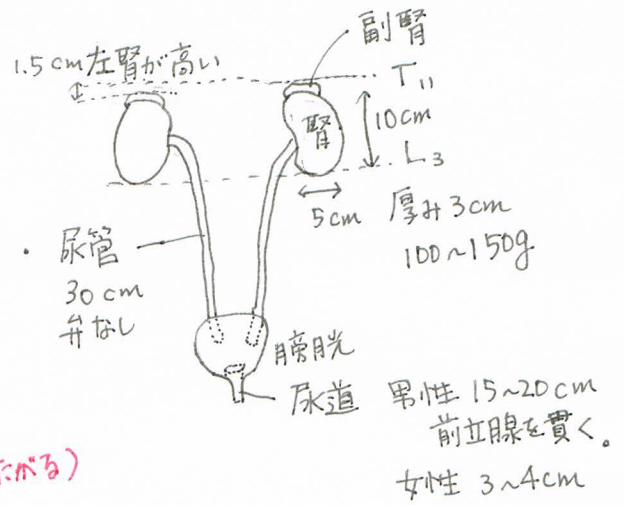 副腎
1.5cm左腎が高い
T11
腎
10cm
L3
5cm
厚み3cm
100~150g
・尿管
30cm
弁なし
膀胱
尿道
男性 15~20cm
前立腺を貫く。
女性 3~4cm
がる)